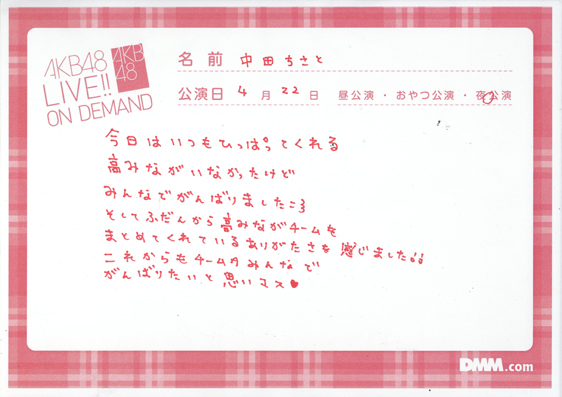 AKB48
LIVE!!
ON DEMAND
AKB
48
名前 中田ちさと
公演日 4月22日 昼公演・おやつ公演・夜公演
今日はいつもひっぱってくれる
高みながいなかったけど
みんなでがんばりました:3
そしてふだんから高みながチームを
まとめてくれているありがたさを感じました!!
これからもチームAみんなで
がんばりたいと思いマス♥
DMM.com